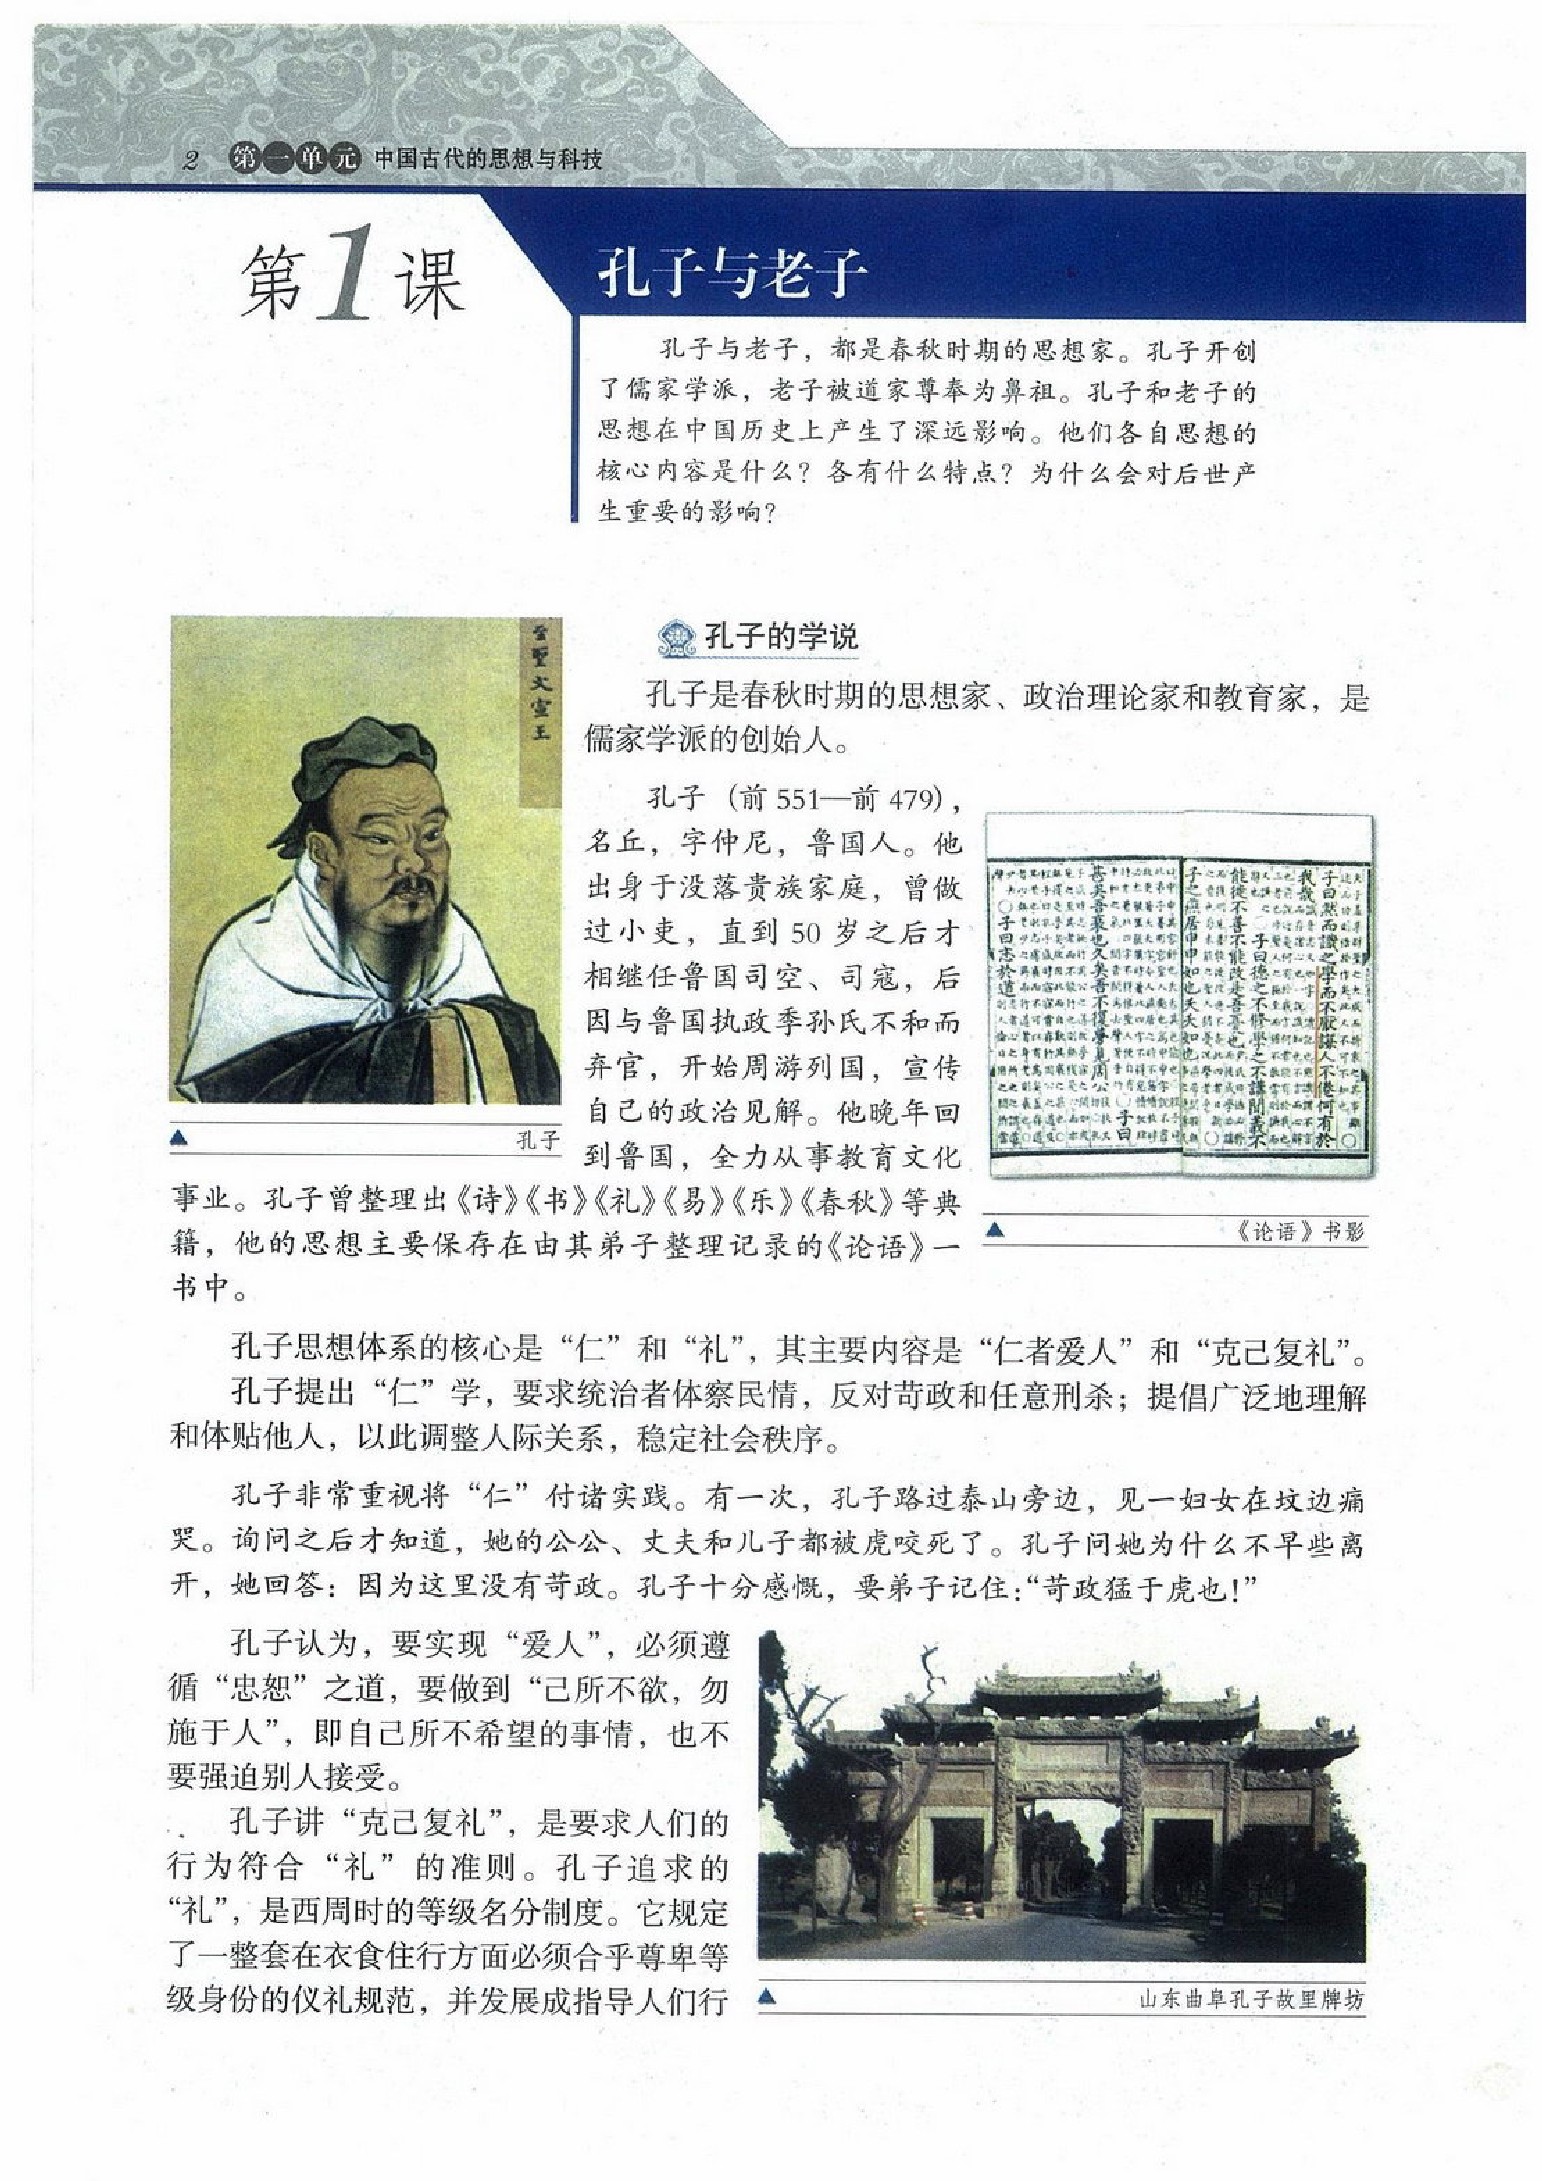 2 第一单元 中国古代的思想与科技
第1课 孔子与老子
孔子与老子，都是春秋时期的思想家。孔子开创
了儒家学派，老子被道家尊奉为鼻祖。孔子和老子的
思想在中国历史上产生了深远影响。他们各自思想的
核心内容是什么？各有什么特点？为什么会对后世产
生重要的影响？
孔子的学说
孔子是春秋时期的思想家、政治理论家和教育家，是
儒家学派的创始人。
孔子（前 551—前 479），
名丘，字仲尼，鲁国人。他
出身于没落贵族家庭，曾做
过小吏，直到 50 岁之后才
相继任鲁国司空、司寇，后
因与鲁国执政季孙氏不和而
弃官，开始周游列国，宣传
自己的政治见解。他晚年回
到鲁国，全力从事教育文化
事业。孔子曾整理出《诗》《书》《礼》《易》《乐》《春秋》等典
籍，他的思想主要保存在由其弟子整理记录的《论语》一
书中。
聖文宣王
孔子
子曰默而識之學而不厭誨人不倦何有於
我哉
子曰德之不脩學之不講聞義不
能徙不善不能改是吾憂也
子之燕居申申如也夭夭如也
子曰
甚矣吾衰也久矣吾不復夢見周公
子曰志於道
《论语》书影
孔子思想体系的核心是“仁”和“礼”，其主要内容是“仁者爱人”和“克己复礼”。
孔子提出“仁”学，要求统治者体察民情，反对苛政和任意刑杀；提倡广泛地理解
和体贴他人，以此调整人际关系，稳定社会秩序。
孔子非常重视将“仁”付诸实践。有一次，孔子路过泰山旁边，见一妇女在坟边痛
哭。询问之后才知道，她的公公、丈夫和儿子都被虎咬死了。孔子问她为什么不早些离
开，她回答：因为这里没有苛政。孔子十分感慨，要弟子记住：“苛政猛于虎也！”
孔子认为，要实现“爱人”，必须遵
循“忠恕”之道，要做到“己所不欲，勿
施于人”，即自己所不希望的事情，也不
要强迫别人接受。
孔子讲“克己复礼”，是要求人们的
行为符合“礼”的准则。孔子追求的
“礼”，是西周时的等级名分制度。它规定
了一整套在衣食住行方面必须合乎尊卑等
级身份的仪礼规范，并发展成指导人们行
山东曲阜孔子故里牌坊